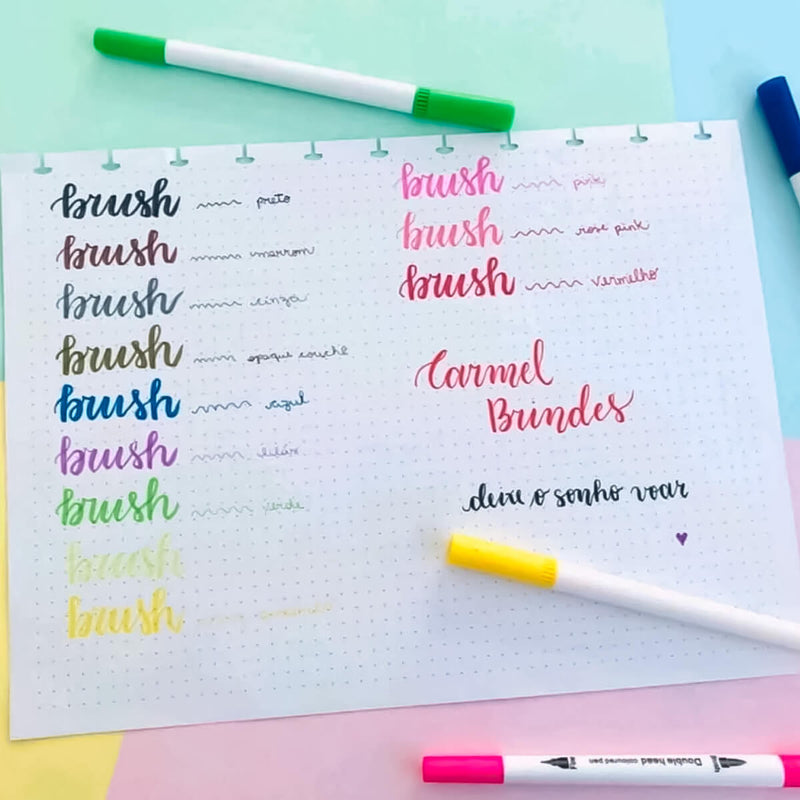 brush preto
brush marrom
brush cinza
brush opaque couche
brush azul
brush lilás
brush verde
brush
brush
brush pink
brush rose pink
brush vermelho
Carmel
Brindes
deixe o sonho voar
Double head coloured pen